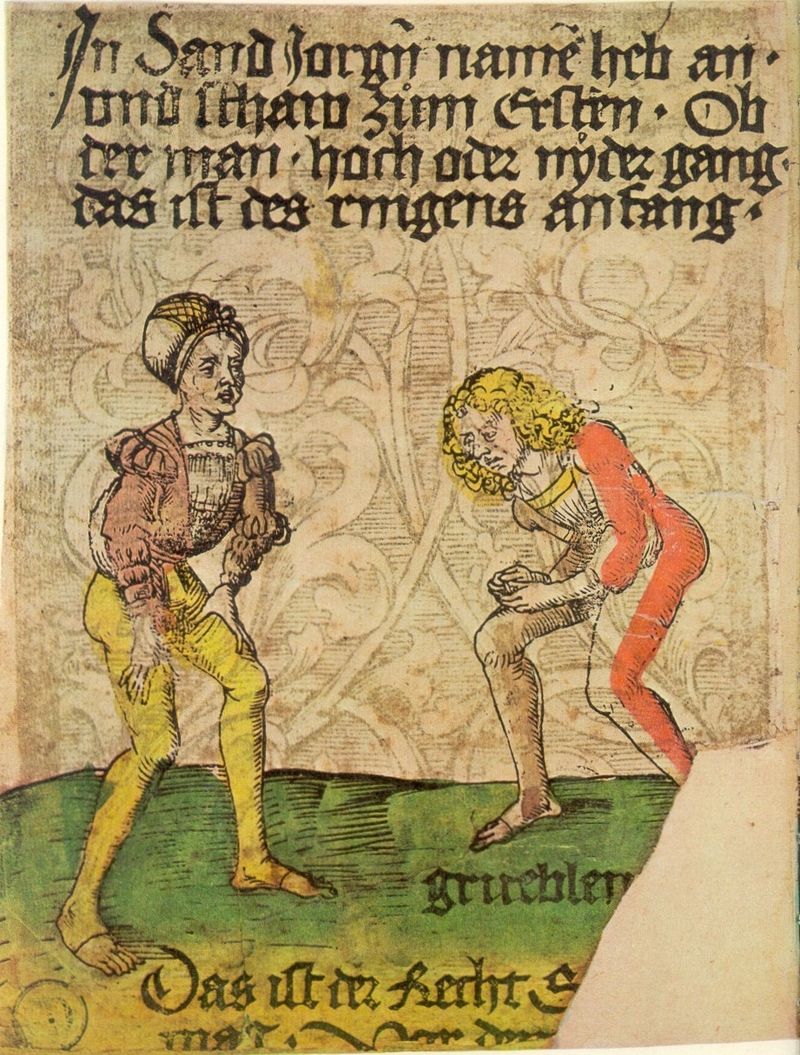 In Sand Jorgn̄ namē heb an·
vnd schaw zům Ersten· Ob
der man· hoch oder nÿder gang·
das ist des ringens anfang·
grueblen
Das ist der Recht S